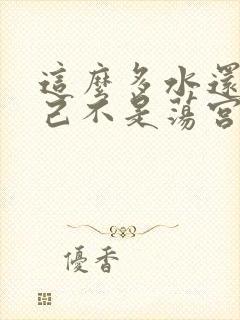 這麼多水還
己不是蕩宮
優香